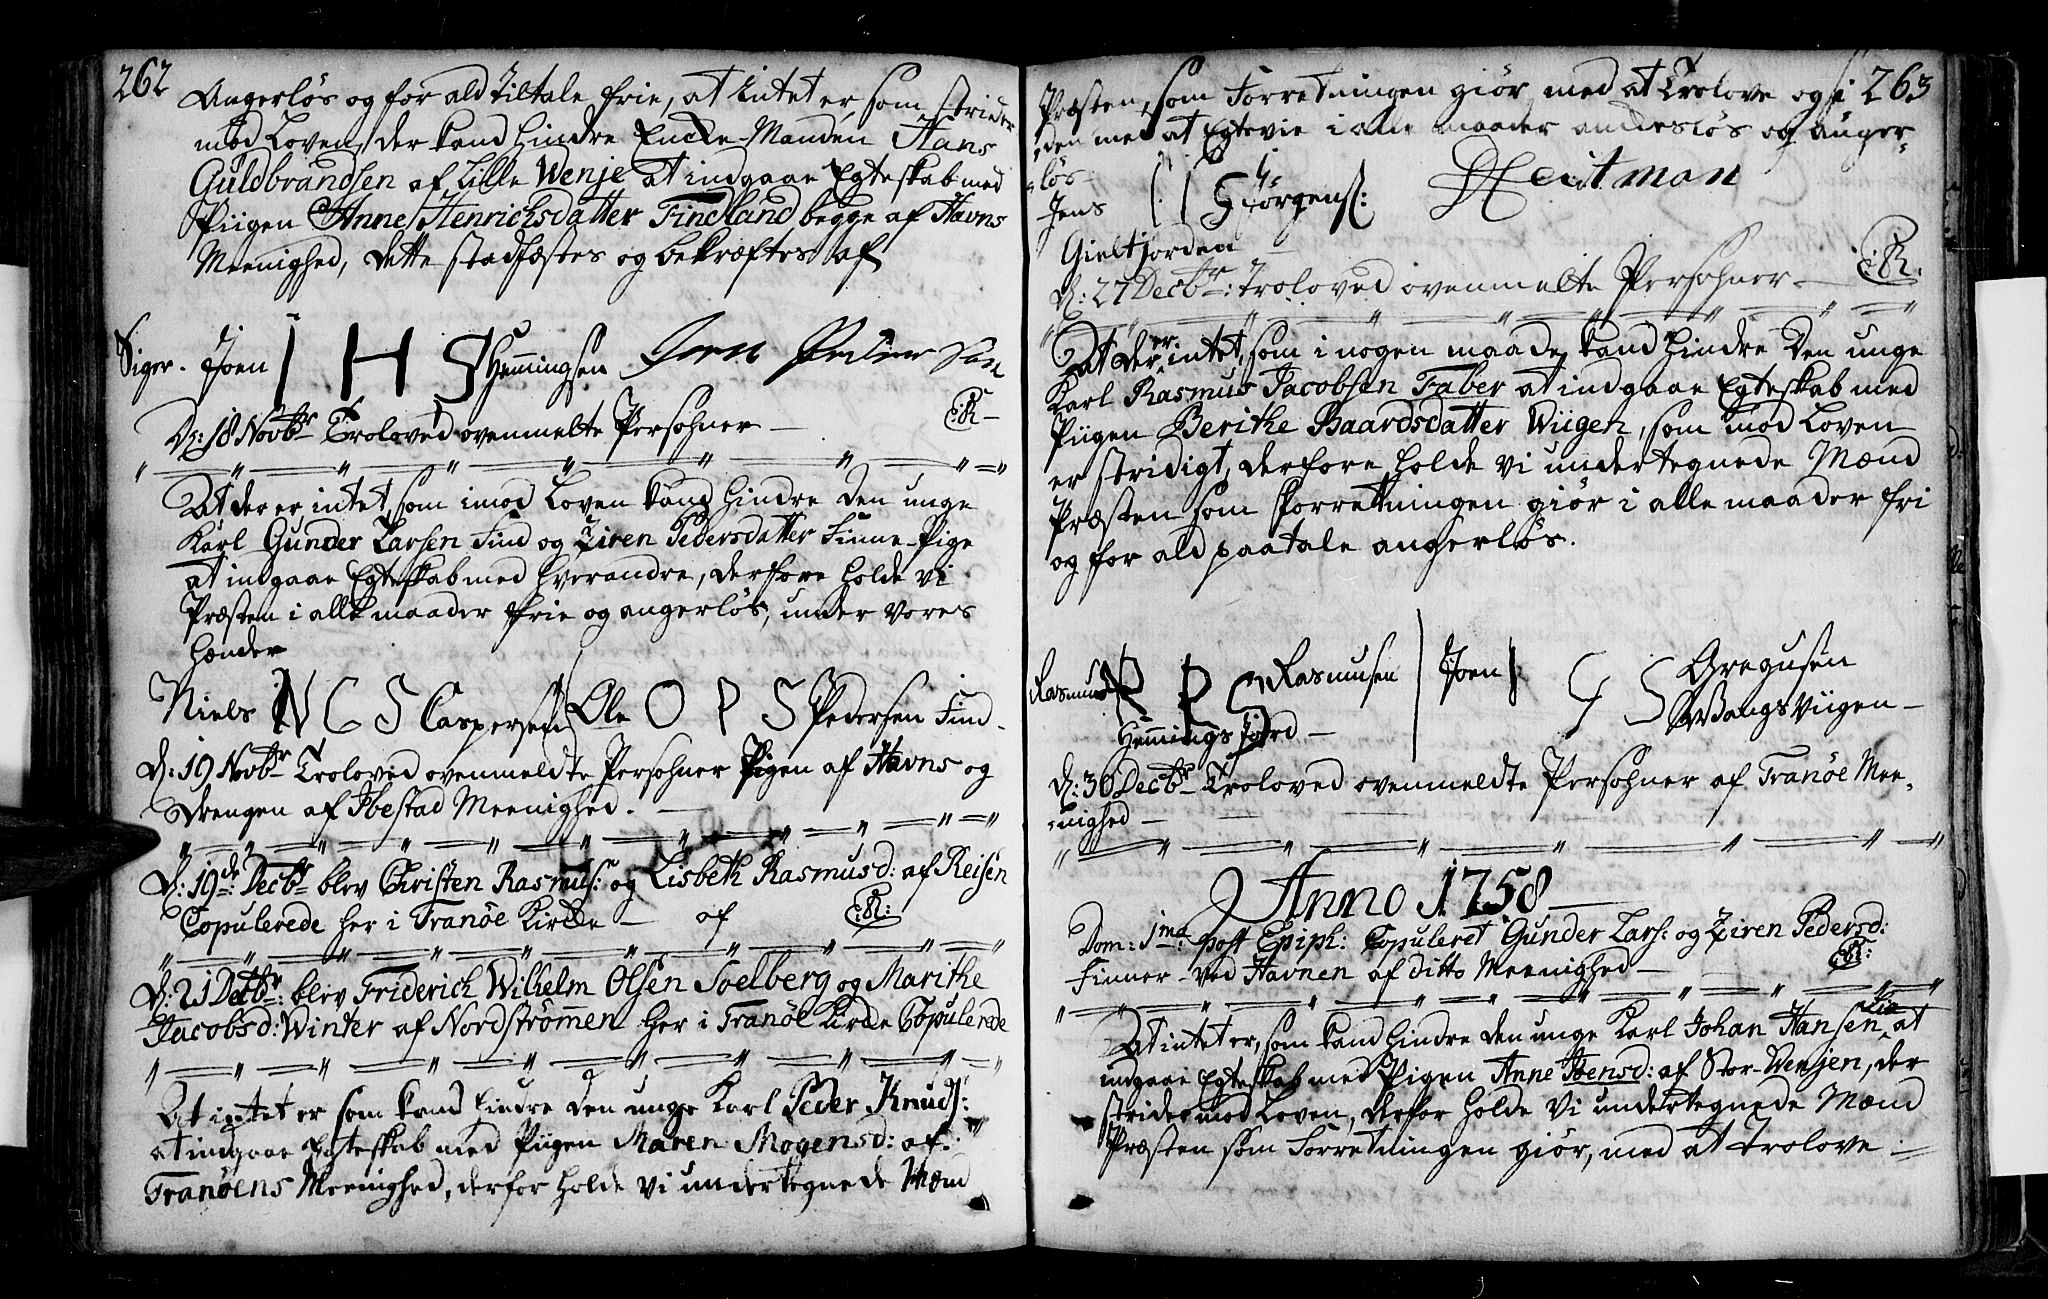 262
Angerløs og for ald tiltale frie, at intet er som strider
mod Loven, der kand hindre Encke-Manden Hans
Guldbrandsen af Lille Wenje at indgaae Egteskab med
Piigen Anne Henrichsdatter Findland begge af Havns
Meenighed, dette stadfæstes og bekræftes af
Siger. Joen I H S Hemingsen Joen Peder Sen
D: 18 Novbr Troloved ovenmelte Persohner
At der er intet, som imod Loven kand hindre den unge
Karl Gunder Larsen Find og Ziren Pedersdatter Finne-Pige
at indgaae Egteskab med hverandre, derfore holde vi
Præsten i alle maader frie og angerløs, under vores
hænder
Niels N C S Caspersen Ole O P S Pedersen Find
D: 19 Novbr Troloved ovenmeldte Persohner Pigen af Havns og
Drengen af Ibestad Meenighed.
D: 19de: Decbr blev Christen Rasmus: og Lisbeth Rasmusd: af Reisen
Copulerede her i Tranøe Kircke af
D: 21 Decbr: blev Friderich Wilhelm Olsen Soelberg og Marithe
Jacobsd: Winter af Nordstrømen her i Tranøe Kirche Copulerede
At intet er som kand hindre den unge Karl Peder Knuds:
at indgaae Egteskab med Piigen Maren Mogensd: af
Tranøens Meenighed, derfor holde vi undertegnede Mænd
263
Præsten, som Forretningen giør med at Trolove og i
den med at Egtevie i alle maader ankesløs og anger-
løs
Jens I Giørgens: Heitman
Gieltjorden
D: 27 Decbr: Troloved ovenmelte Persohner
At der er intet, som i nogen maade kand hindre den unge
Karl Rasmus Jacobsen Faber at indgaae Egteskab med
Piigen Berithe Baardsdatter Wiigen, som mod Loven
er stridigt, derfore holde vi undertegnede Mænd
Præsten som forretningen giør i alle maader fri
og for ald paatale angerløs.
Rasmus R R S Rasmusen Joen I G S Gregusen
Hemings fiord Wangs Viigen
D: 30 Decbr Troloved ovenmeldte Persohner af Tranøe Mee-
nighed
Anno 1758
Dom: 1ma: post Epiph: Copuleret Gunder Lars: og Ziren Pedersd:
Finner ved Havnen af ditto Meenighed
At intet er, som kand hindre den unge Karl Johan Hansen Lie at
indgaae Egteskab med Piigen Anne Jensd: af Stor-Wenjen, der
strider mod Loven, derfor holde vi undertegnede Mænd
Præsten som Forretningen giør, med at trolove